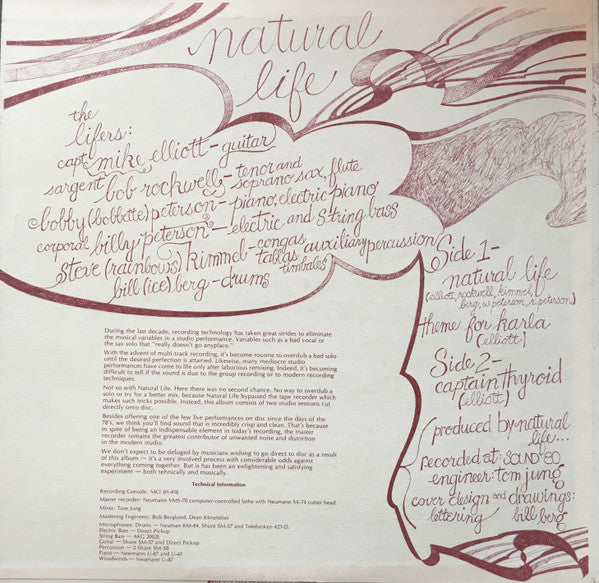 natural
life
the
lifers:
capt. mike elliott - guitar
sargent bob rockwell - tenor and
soprano sax, flute
bobby (bobbette) peterson - piano, electric piano
corporal billy peterson - electric and string bass
steve (rainbows) kimmel - congas
tallas auxiliary percussion
timbales
bill (ice) berg - drums
Side 1 -
natural life
(elliott, rockwell, kimmel,
berg, w. peterson, r. peterson)
theme for karla
(elliott)
Side 2 -
captain thyroid
(elliott)
produced by natural
life...
recorded at: SOUND 80
engineer: tom jung
cover design and drawings:
lettering bill berg
During the last decade, recording technology has taken great strides to eliminate
the musical variables in a studio performance. Variables such as a bad vocal or
the sax solo that "really doesn't go anyplace."
With the advent of multi-track recording, it's become routine to overdub a bad solo
until the desired perfection is attained. Likewise, many mediocre studio
performances have come to life only after laborious remixing. Indeed, it's becoming
difficult to tell if the sound is due to the group recording or to modern recording
techniques.
Not so with Natural Life. Here there was no second chance. No way to overdub a
solo or try for a better mix, because Natural Life bypassed the tape recorder which
makes such tricks possible. Instead, this album consists of two studio sessions cut
directly onto disc.
Besides offering one of the few live performances on disc since the days of the
78's, we think you'll find sound that is incredibly crisp and clean. That's because
in spite of being an indispensable element in today's recording, the master
recorder remains the greatest contributor of unwanted noise and distortion
in the modern studio.
We don't expect to be deluged by musicians wishing to go direct to disc as a result
of this album — it's a very involved process with considerable odds against
everything coming together. But is has been an enlightening and satisfying
experiment — both tehnically and musically.
Technical Information
Recording Console: MCI JH-416
Master recorder: Neumann VMS-70 computer-controlled lathe with Neumann SX-74 cutter head.
Mixer: Tom Jung
Mastering Engineers: Bob Berglund, Dean Klinefelter
Microphones: Drums — Neuman KM-84, Shure SM-57 and Telefunken 421-D.
Electric Bass — Direct Pickup
String Bass — AKG 202E
Guitar — Shure SM-57 and Direct Pickup
Percussion — 2 Shure SM-58
Piano — Newmann U-87 and U-47
Woodwinds — Neumann U-87